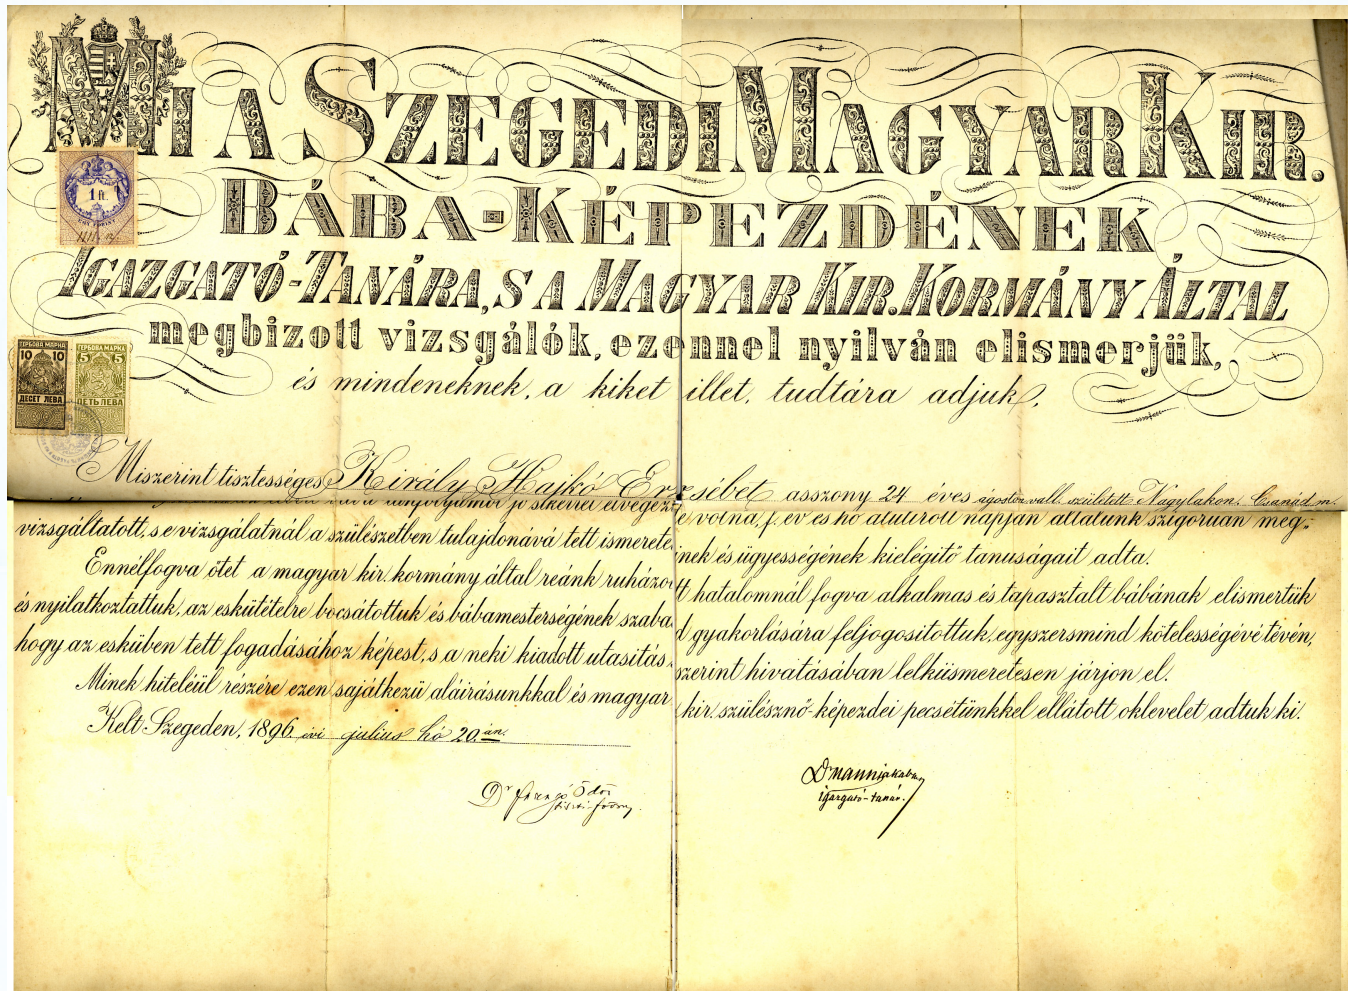 MI A SZEGEDI MAGYAR KIR.
BÁBA-KÉPEZDÉNEK
IGAZGATÓ-TANÁRA, S A MAGYAR KIR. KORMÁNY ÁLTAL
megbizott vizsgálók, ezennel nyilván elismerjük,
és mindeneknek, a kiket illet, tudtára adjuk,
1 ft.
ГЕРБОВА МАРКА
10 10
ДЕСЕТ ЛЕВА
ГЕРБОВА МАРКА
5 5
ПЕТЬ ЛЕВА
Miszerint tisztességes Király Hajkó Erzsébet asszony 24 éves ágostai vall. született Nagylakon. Csanád m.
jó sikerrel elvégezte volna, f. év és hó alulirott napján általunk szigoruan meg-
vizsgáltatott, s e vizsgálatnál a szülészetben tulajdonává tett ismereteinek és ügyességének kielégitő tanuságait adta.
Ennélfogva őtet a magyar kir. kormány által reánk ruházott hatalomnál fogva alkalmas és tapasztalt bábának elismertük
és nyilatkoztattuk, az eskütételre bocsátottuk és bábamesterségének szabad gyakorlására feljogositottuk, egyszersmind kötelességévé tévén,
hogy az esküben tett fogadásához képest, s a neki kiadott utasitás szerint hivatásában lelkiismeretesen járjon el.
Minek hiteléül részére ezen sajátkezü aláirásunkkal és magyar kir. szülésznő-képezdei pecsétünkkel ellátott oklevelet adtuk ki.
Kelt Szegeden, 1896 évi julius hó 20.án.
Dr Mann Jakab
igazgató-tanár.
Dr Ödön